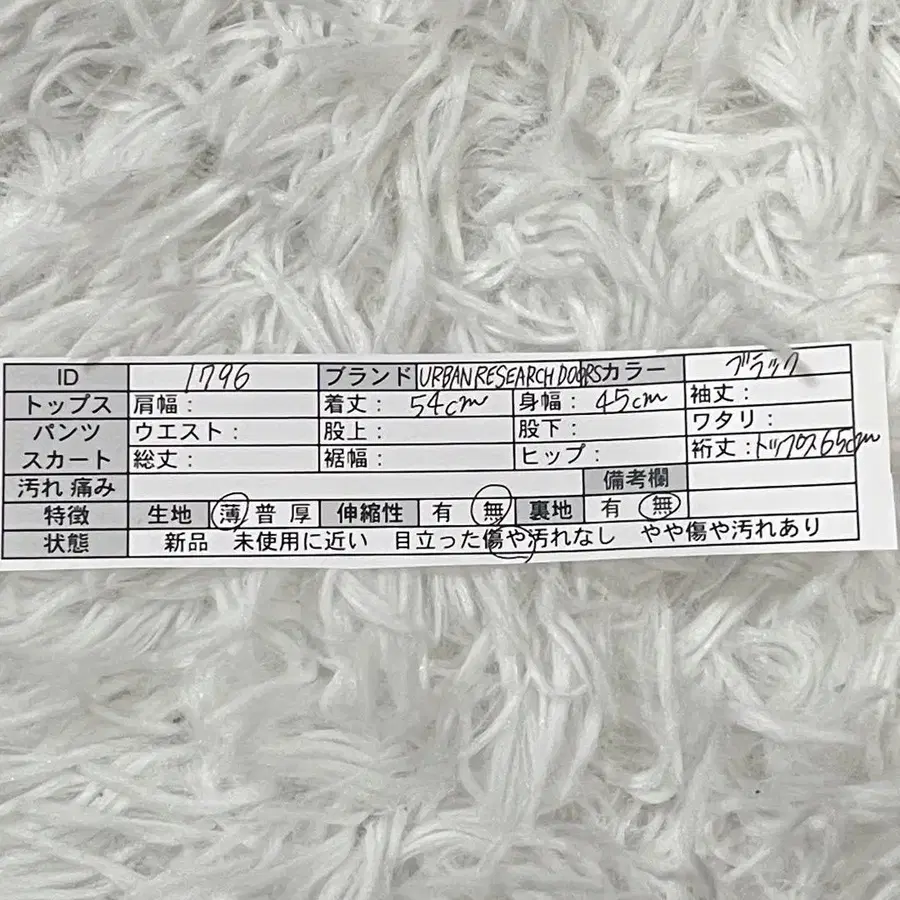 ID 1796 ブランド URBAN RESEARCH DOORS カラー ブラック
トップス 肩幅: 着丈: 54cm 身幅: 45cm 袖丈:
パンツ ウエスト: 股上: 股下: ワタリ:
スカート 総丈: 裾幅: ヒップ: 裄丈:トップス65cm
汚れ 痛み 備考欄
特徴 生地 薄 普 厚 伸縮性 有 無 裏地 有 無
状態 新品 未使用に近い 目立った傷や汚れなし やや傷や汚れあり